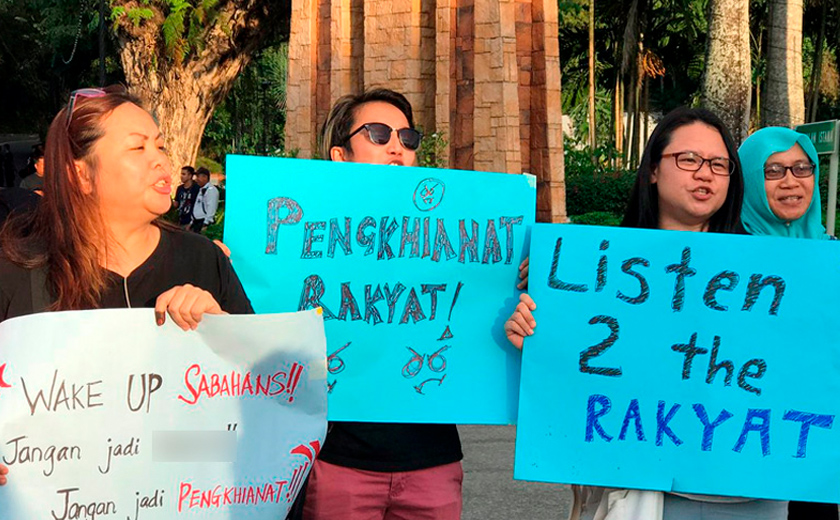 WAKE UP SABAHANS!!
Jangan jadi
Jangan jadi PENGKHIANAT!!!
PENGKHIANAT
RAKYAT!
Listen
2 the
RAKYAT